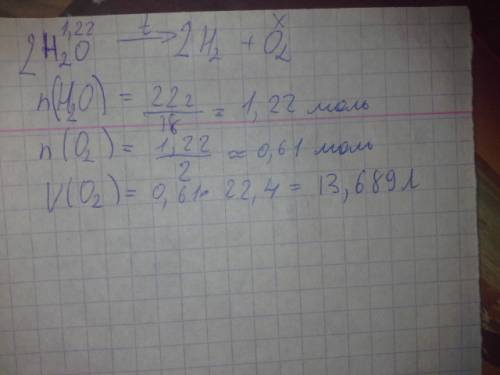 1,22 x
2H₂O —t→ 2H₂ + O₂
n(H₂O) = 22г/18 = 1,22 моль
n(O₂) = 1,22/2 ≈ 0,61 моль
V(O₂) = 0,61· 22,4 = 13,689л